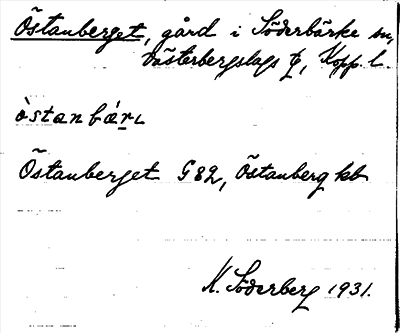 Östanberget, gård i Söderbärke sn,
Västerbergslags tg, Kopp. l.
östanbárɩ
Östanberget G82, Östanberg kb
K. Söderberg 1931.